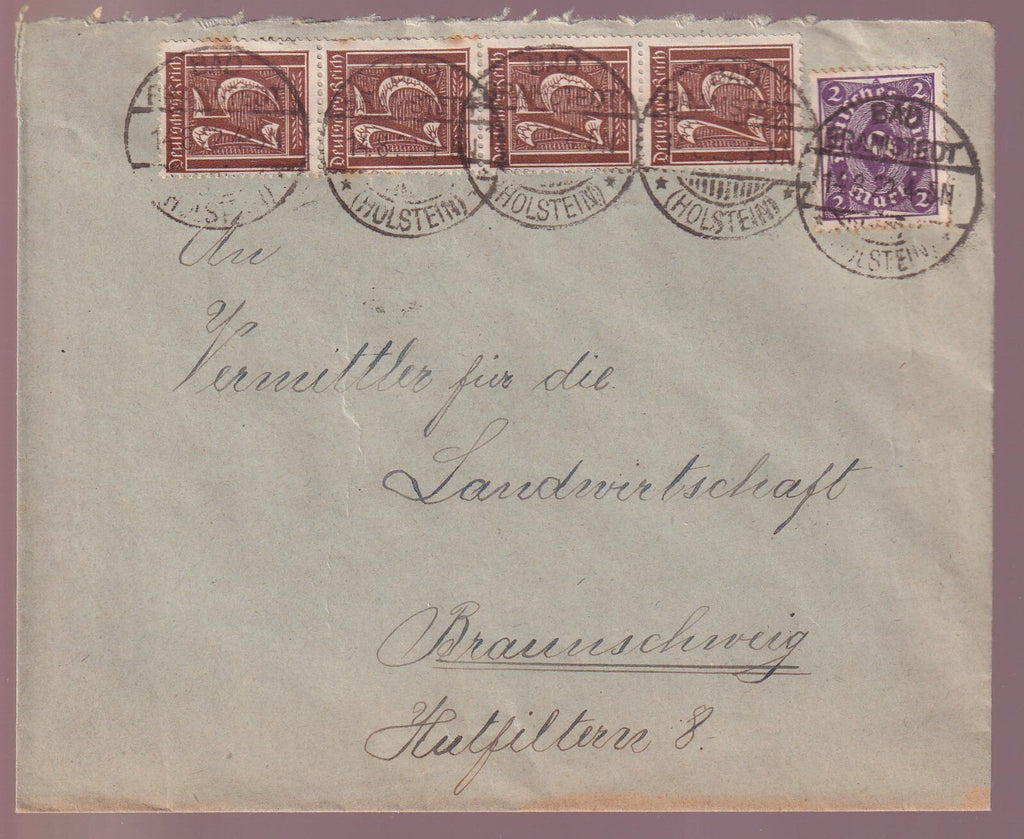 Deutsches Reich 25
Deutsches Reich 25
Deutsches Reich 25
Deutsches Reich 25
2 2
2 Mark 2
BAD
(HOLSTEIN)
BAD
(HOLSTEIN)
BAD
(HOLSTEIN)
BAD
(HOLSTEIN)
BAD
BRAMSTEDT
(HOLSTEIN)
An
Vermittler für die
Landwirtschaft
Braunschweig
Hutfiltern 8.